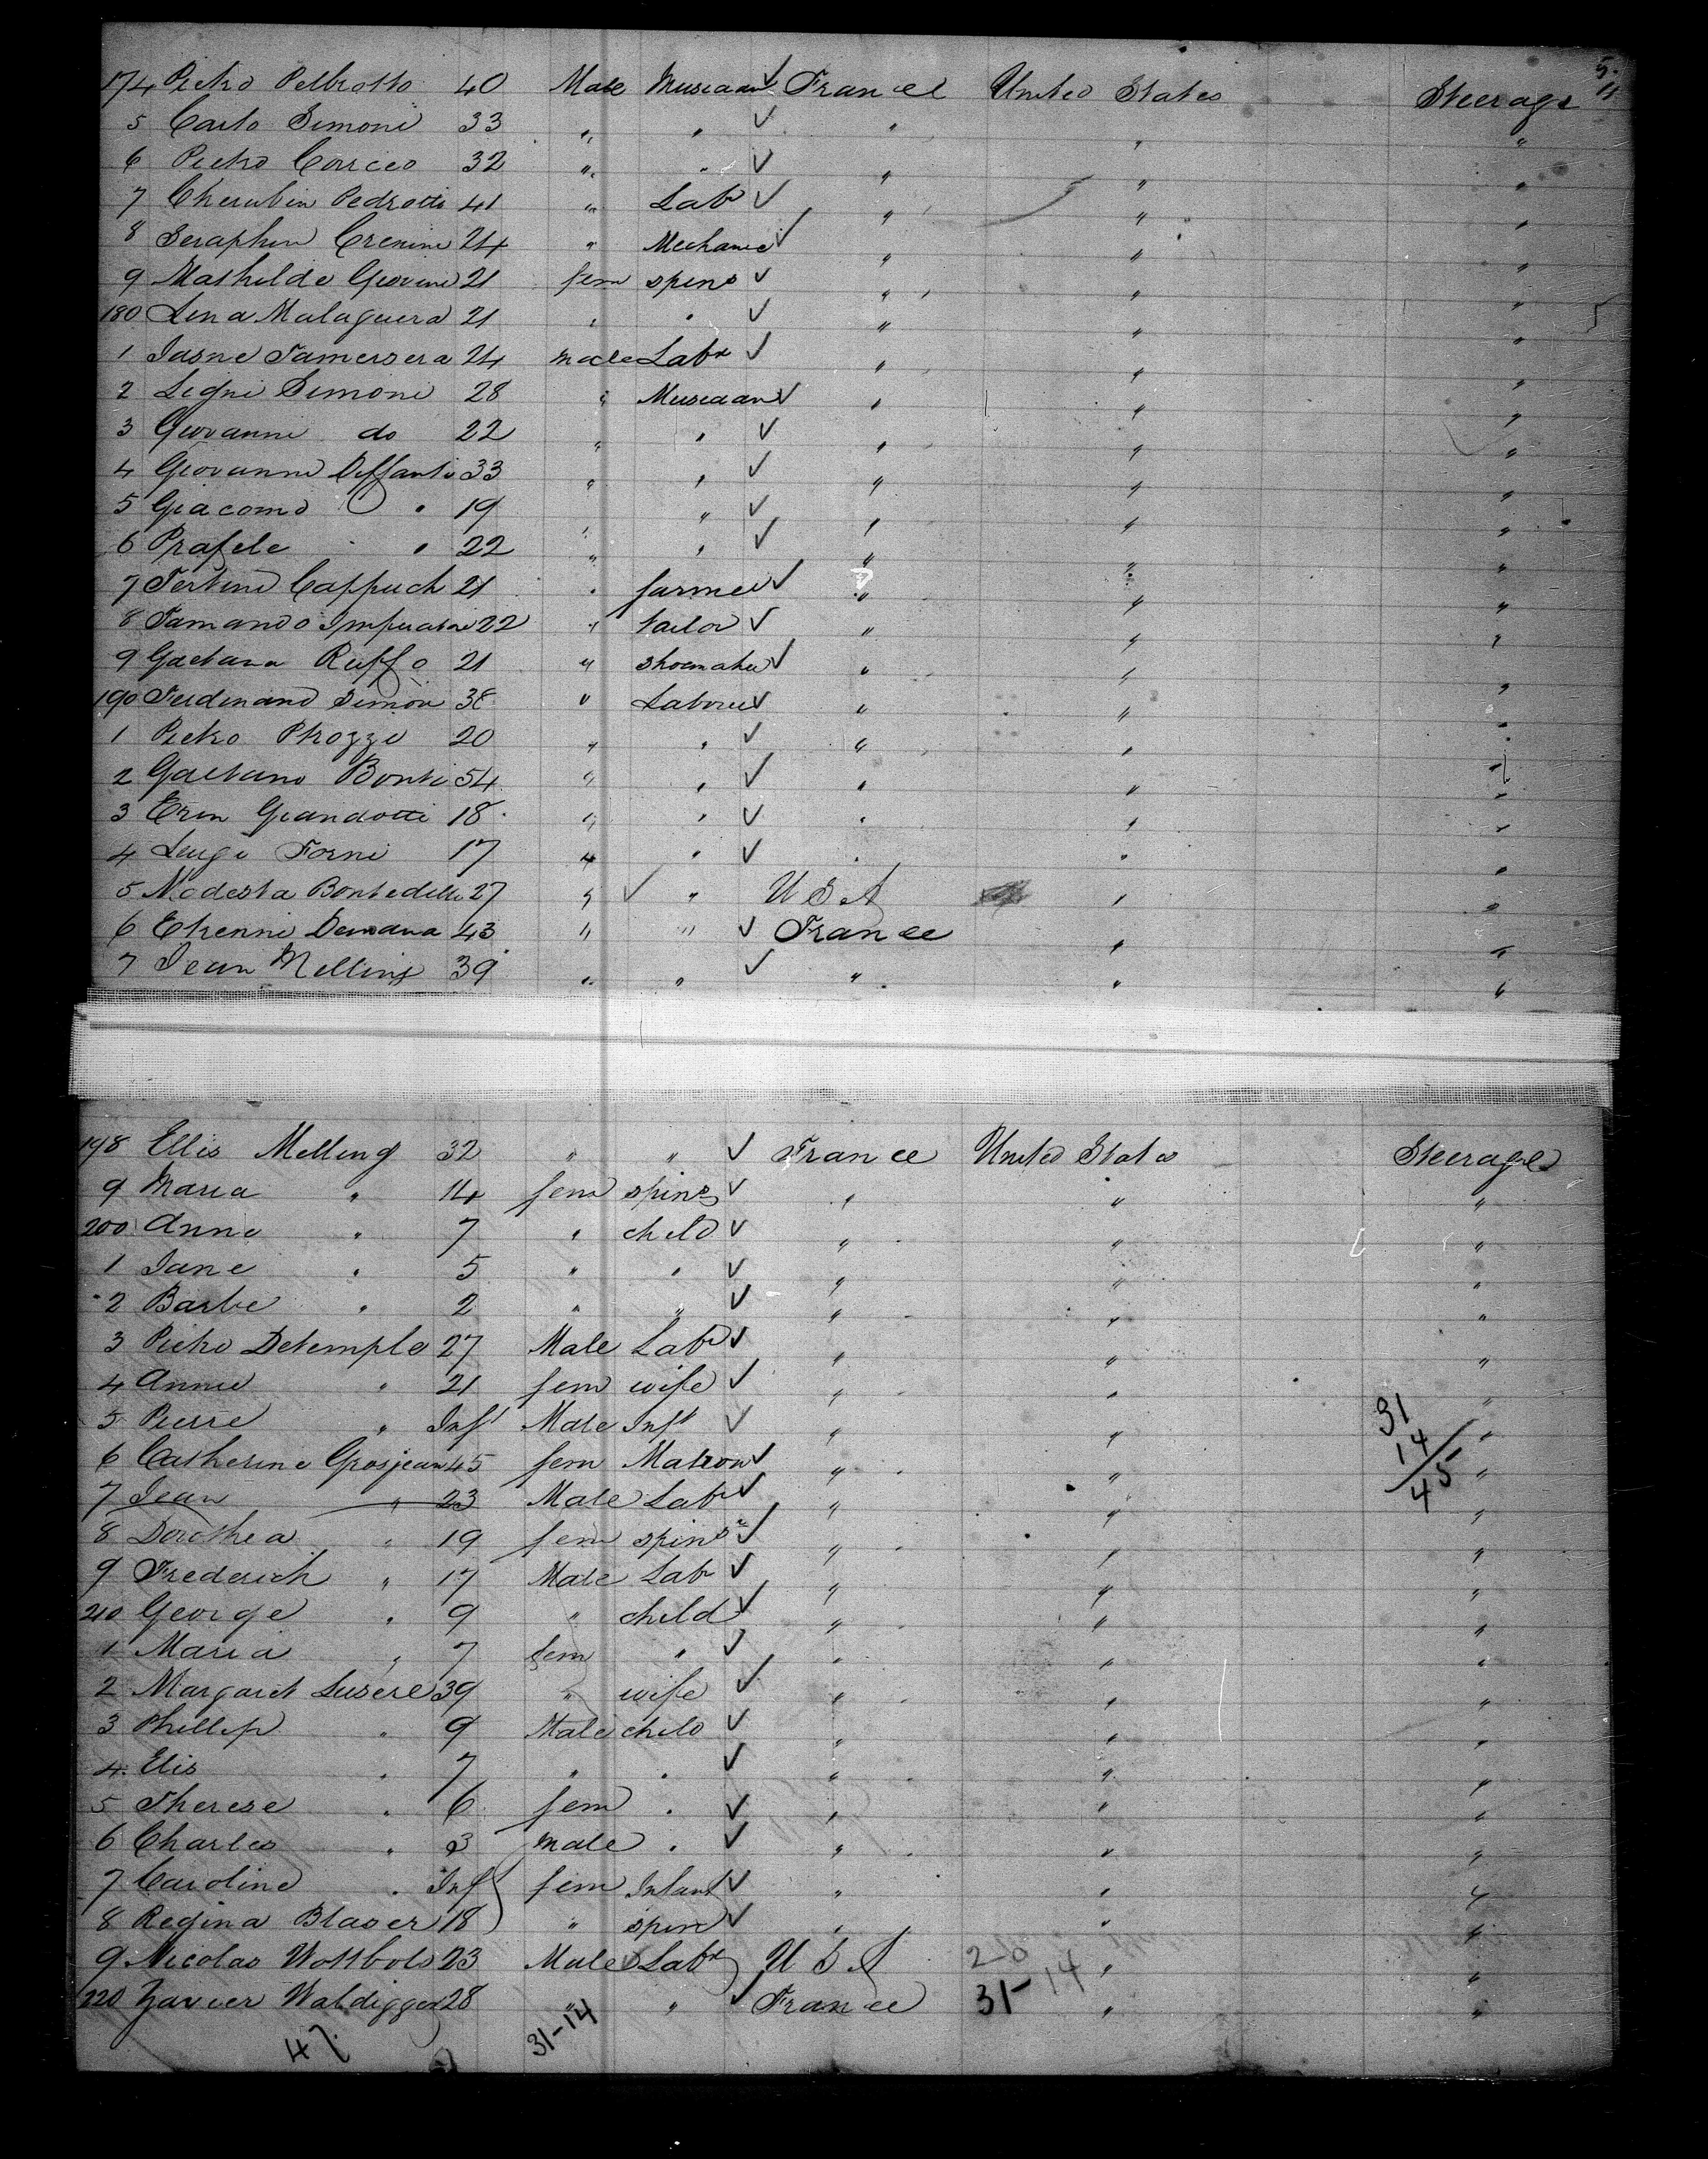 5.
174 Pietro Pelbrotto 40 Male Musician ✓ France United States Steerage
5 Carlo Simoni 33 " " ✓ " " "
6 Pietro Corceo 32 " " ✓ " " "
7 Cherubin Pedrotti 41 " Labr ✓ " " "
8 Seraphin Cremine 24 " Mechanic ✓ " " "
9 Mathilde Giovine 21 fem spins ✓ " " "
180 Lena Malaguera 21 " " ✓ " " "
1 Jasne Tamersera 24 male Labr ✓ " " "
2 Ligni Simoni 28 " Musician ✓ " " "
3 Giovanni do 22 " " ✓ " " "
4 Giovanni Deffanti 33 " " ✓ " " "
5 Giacomo " 19 " " ✓ " " "
6 Prafele " 22 " " ✓ " " "
7 Tertini Cappuch 21 " farmer ✓ " " "
8 Tamando 22 " tailor ✓ " " "
9 Gaetana Ruffo 21 " shoemaker ✓ " " "
190 Ferdinand Simon 38 " Laborer ✓ " " "
1 Pietro Phozzi 20 " " ✓ " " "
2 Gaetano Bonti 54 " " ✓ " " "
3 Erin Giandotti 18 " " ✓ " " "
4 Luigi Forni 17 " " ✓ " " "
5 Modesta Bontedelli 27 " ✓ " U S A " "
6 Etienni Demana 43 " " ✓ France " "
7 Jean Melling 39 " " ✓ " " "
198 Ellis Melling 32 " " ✓ France United States Steerage
9 Maria " 14 fem spins ✓ " " "
200 Anna " 7 " child ✓ " " "
1 Jane " 5 " " ✓ " " "
2 Barbe " 2 " " ✓ " " "
3 Pietro Detemple 27 Male Labr ✓ " " "
4 Annie " 21 fem wife ✓ " " "
5 Pierre " Inft Male Inft ✓ " " "
6 Catherine Grosjean 45 fem Matron ✓ " " "
7 Jean " 23 Male Labr ✓ " " "
8 Dorothea " 19 fem spinsr ✓ " " "
9 Frederich " 17 Male Labr ✓ " " "
210 George " 9 " child ✓ " " "
1 Maria " 7 fem " ✓ " " "
2 Margaret Lusere 39 " wife ✓ " " "
3 Phillip " 9 Male child ✓ " " "
4 Elis " 7 " " ✓ " " "
5 Therese " 6 fem " ✓ " " "
6 Charles " 3 male " ✓ " " "
7 Caroline " Inf fem Infant ✓ " " "
8 Regina Blaser 18 " spin ✓ " " "
9 Nicolas Wottbols 23 Male Labr U S A "  "
220 Zavier Waldigger 28 " " ✓ France " "
31
14
45
20
31-14
31-14
47